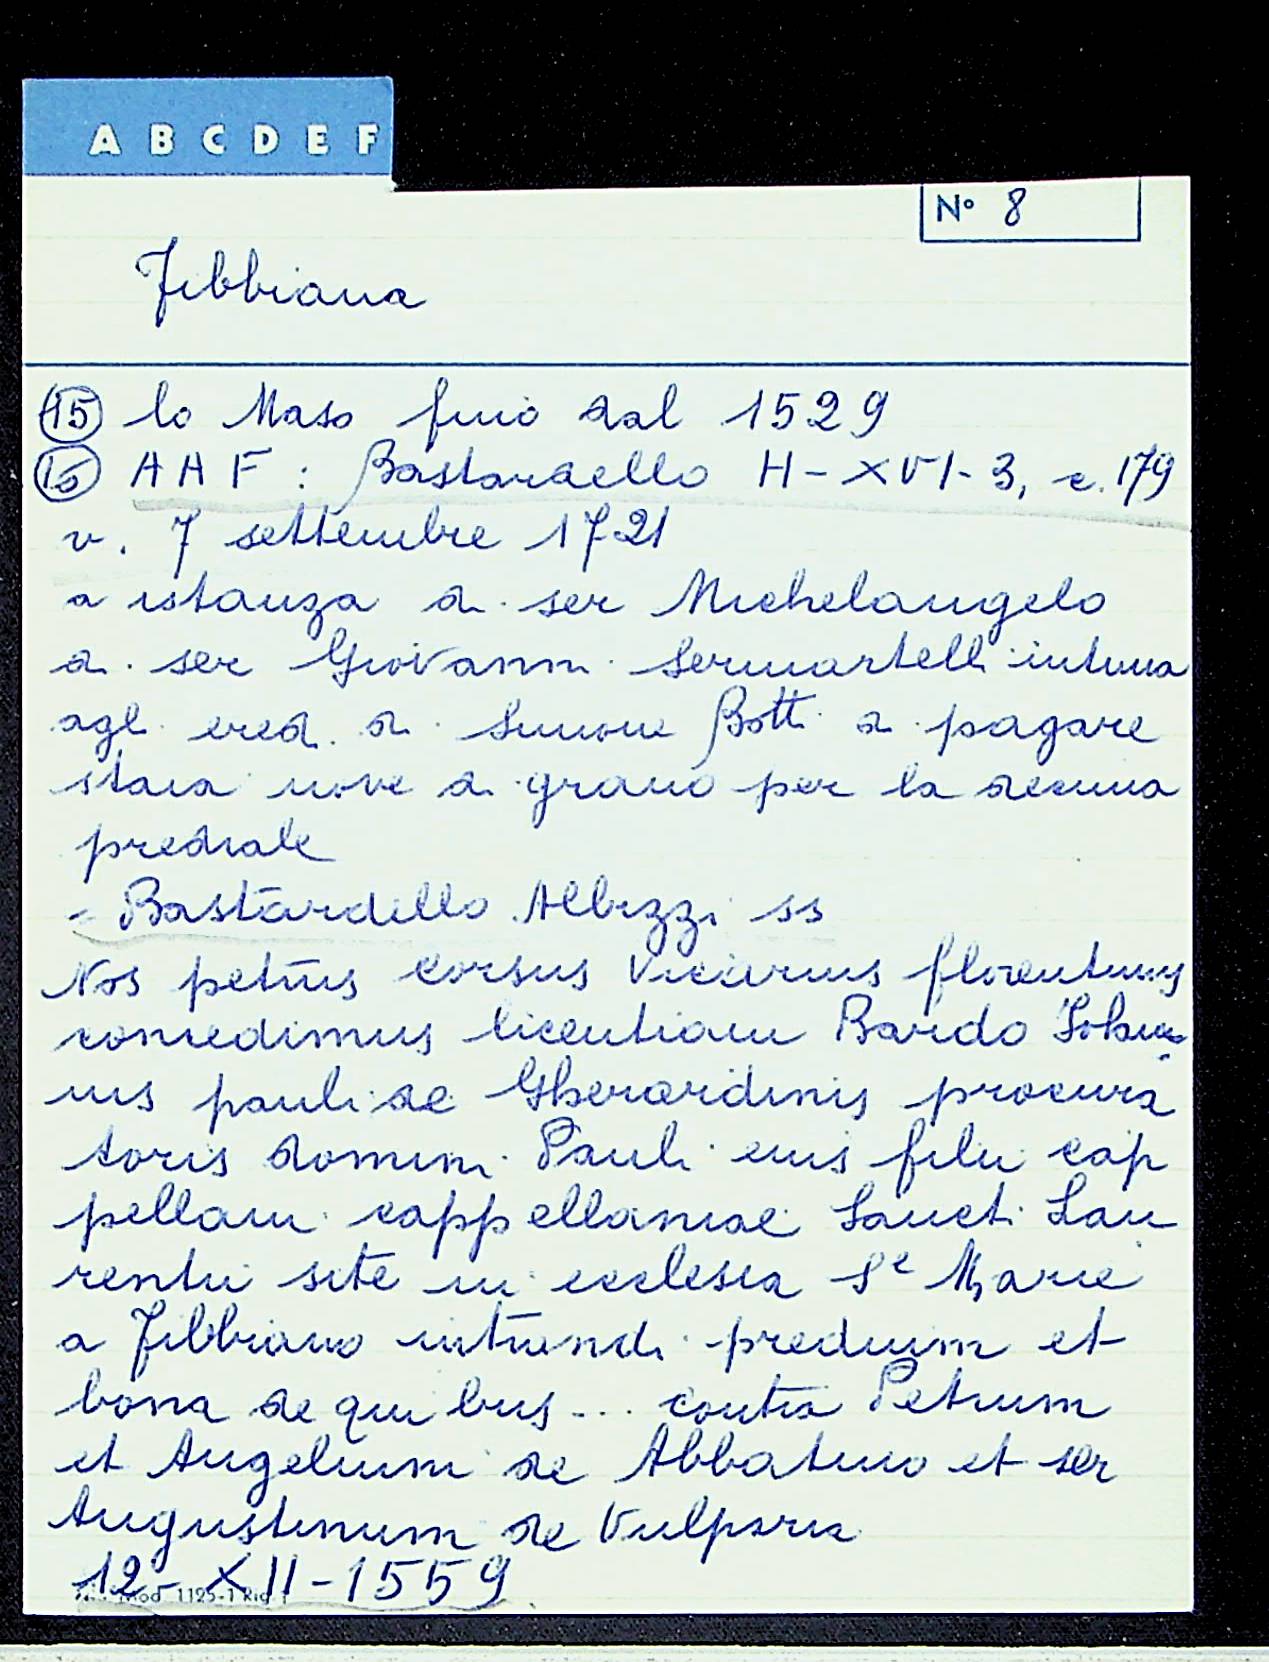 A B C D E F
Nº 8
Fibbiana
15 lo Maso fino dal 1529
16 A A F : Bastardello H - XVI - 3, c. 179
v. 7 settembre 1721
a istanza di ser Michelangelo
di ser Giovanni Sermartelli intima
agli eredi di Simone Botti a pagare
staia nove di grano per la decima
prediale
= Bastardello Albizzi ss
Nos petrus corsus Vicarius florentinus
concedimus licentiam Bardo
nis pauli de Gherardinis procura
toris domini Pauli eius filii cap
pellani cappellaniae Sancti Lau
rentii site in ecclesia Sᵉ Marie
a Fibbiano intrandi predium et
bona de quibus ... contra Petrum
et Angelium de Abbatuno et ser
Augustinum de Vulparia
12 - XII - 1559
Mod 1125-1 Rig